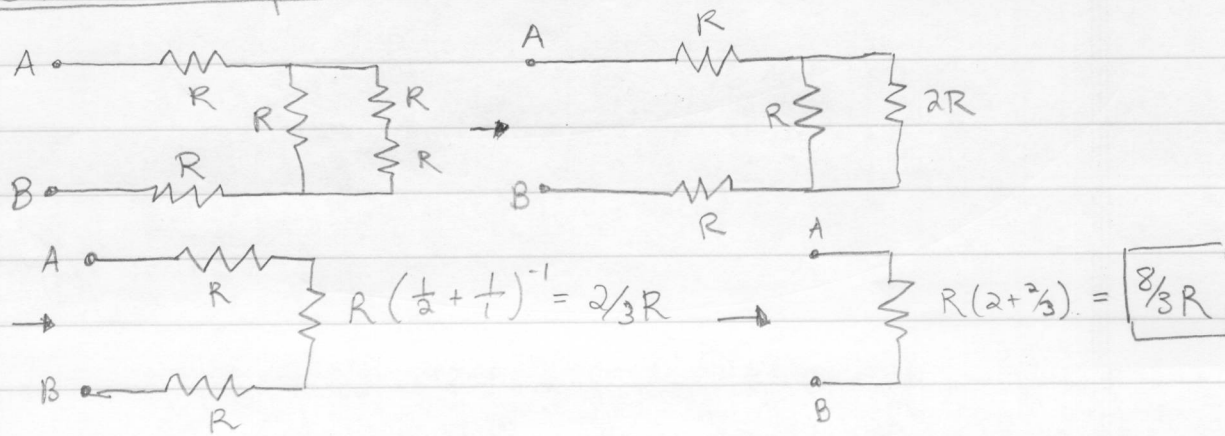 A R R R R B R
A R R 2R B R
A R B R R(1/2 + 1/1)⁻¹ = 2/3 R
A B R(2+2/3). = 8/3 R